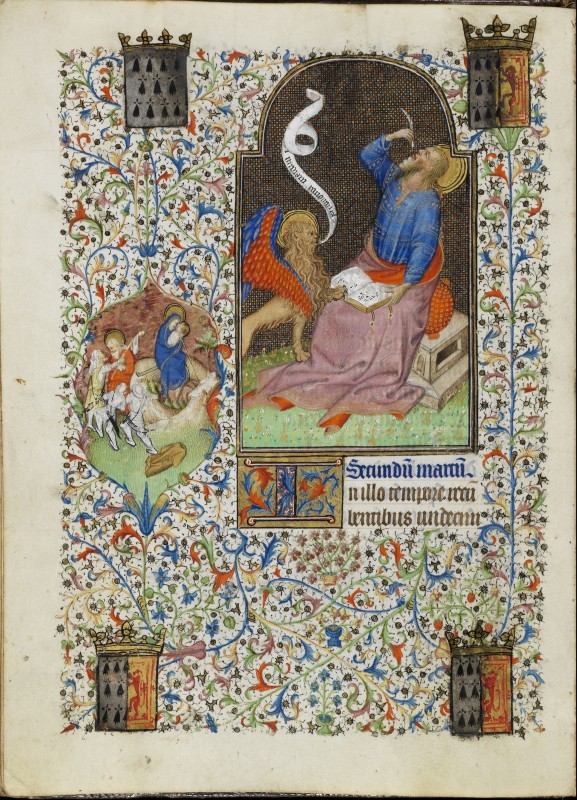 Secundū marcū.
In illo tempore recū
bentibus undecim